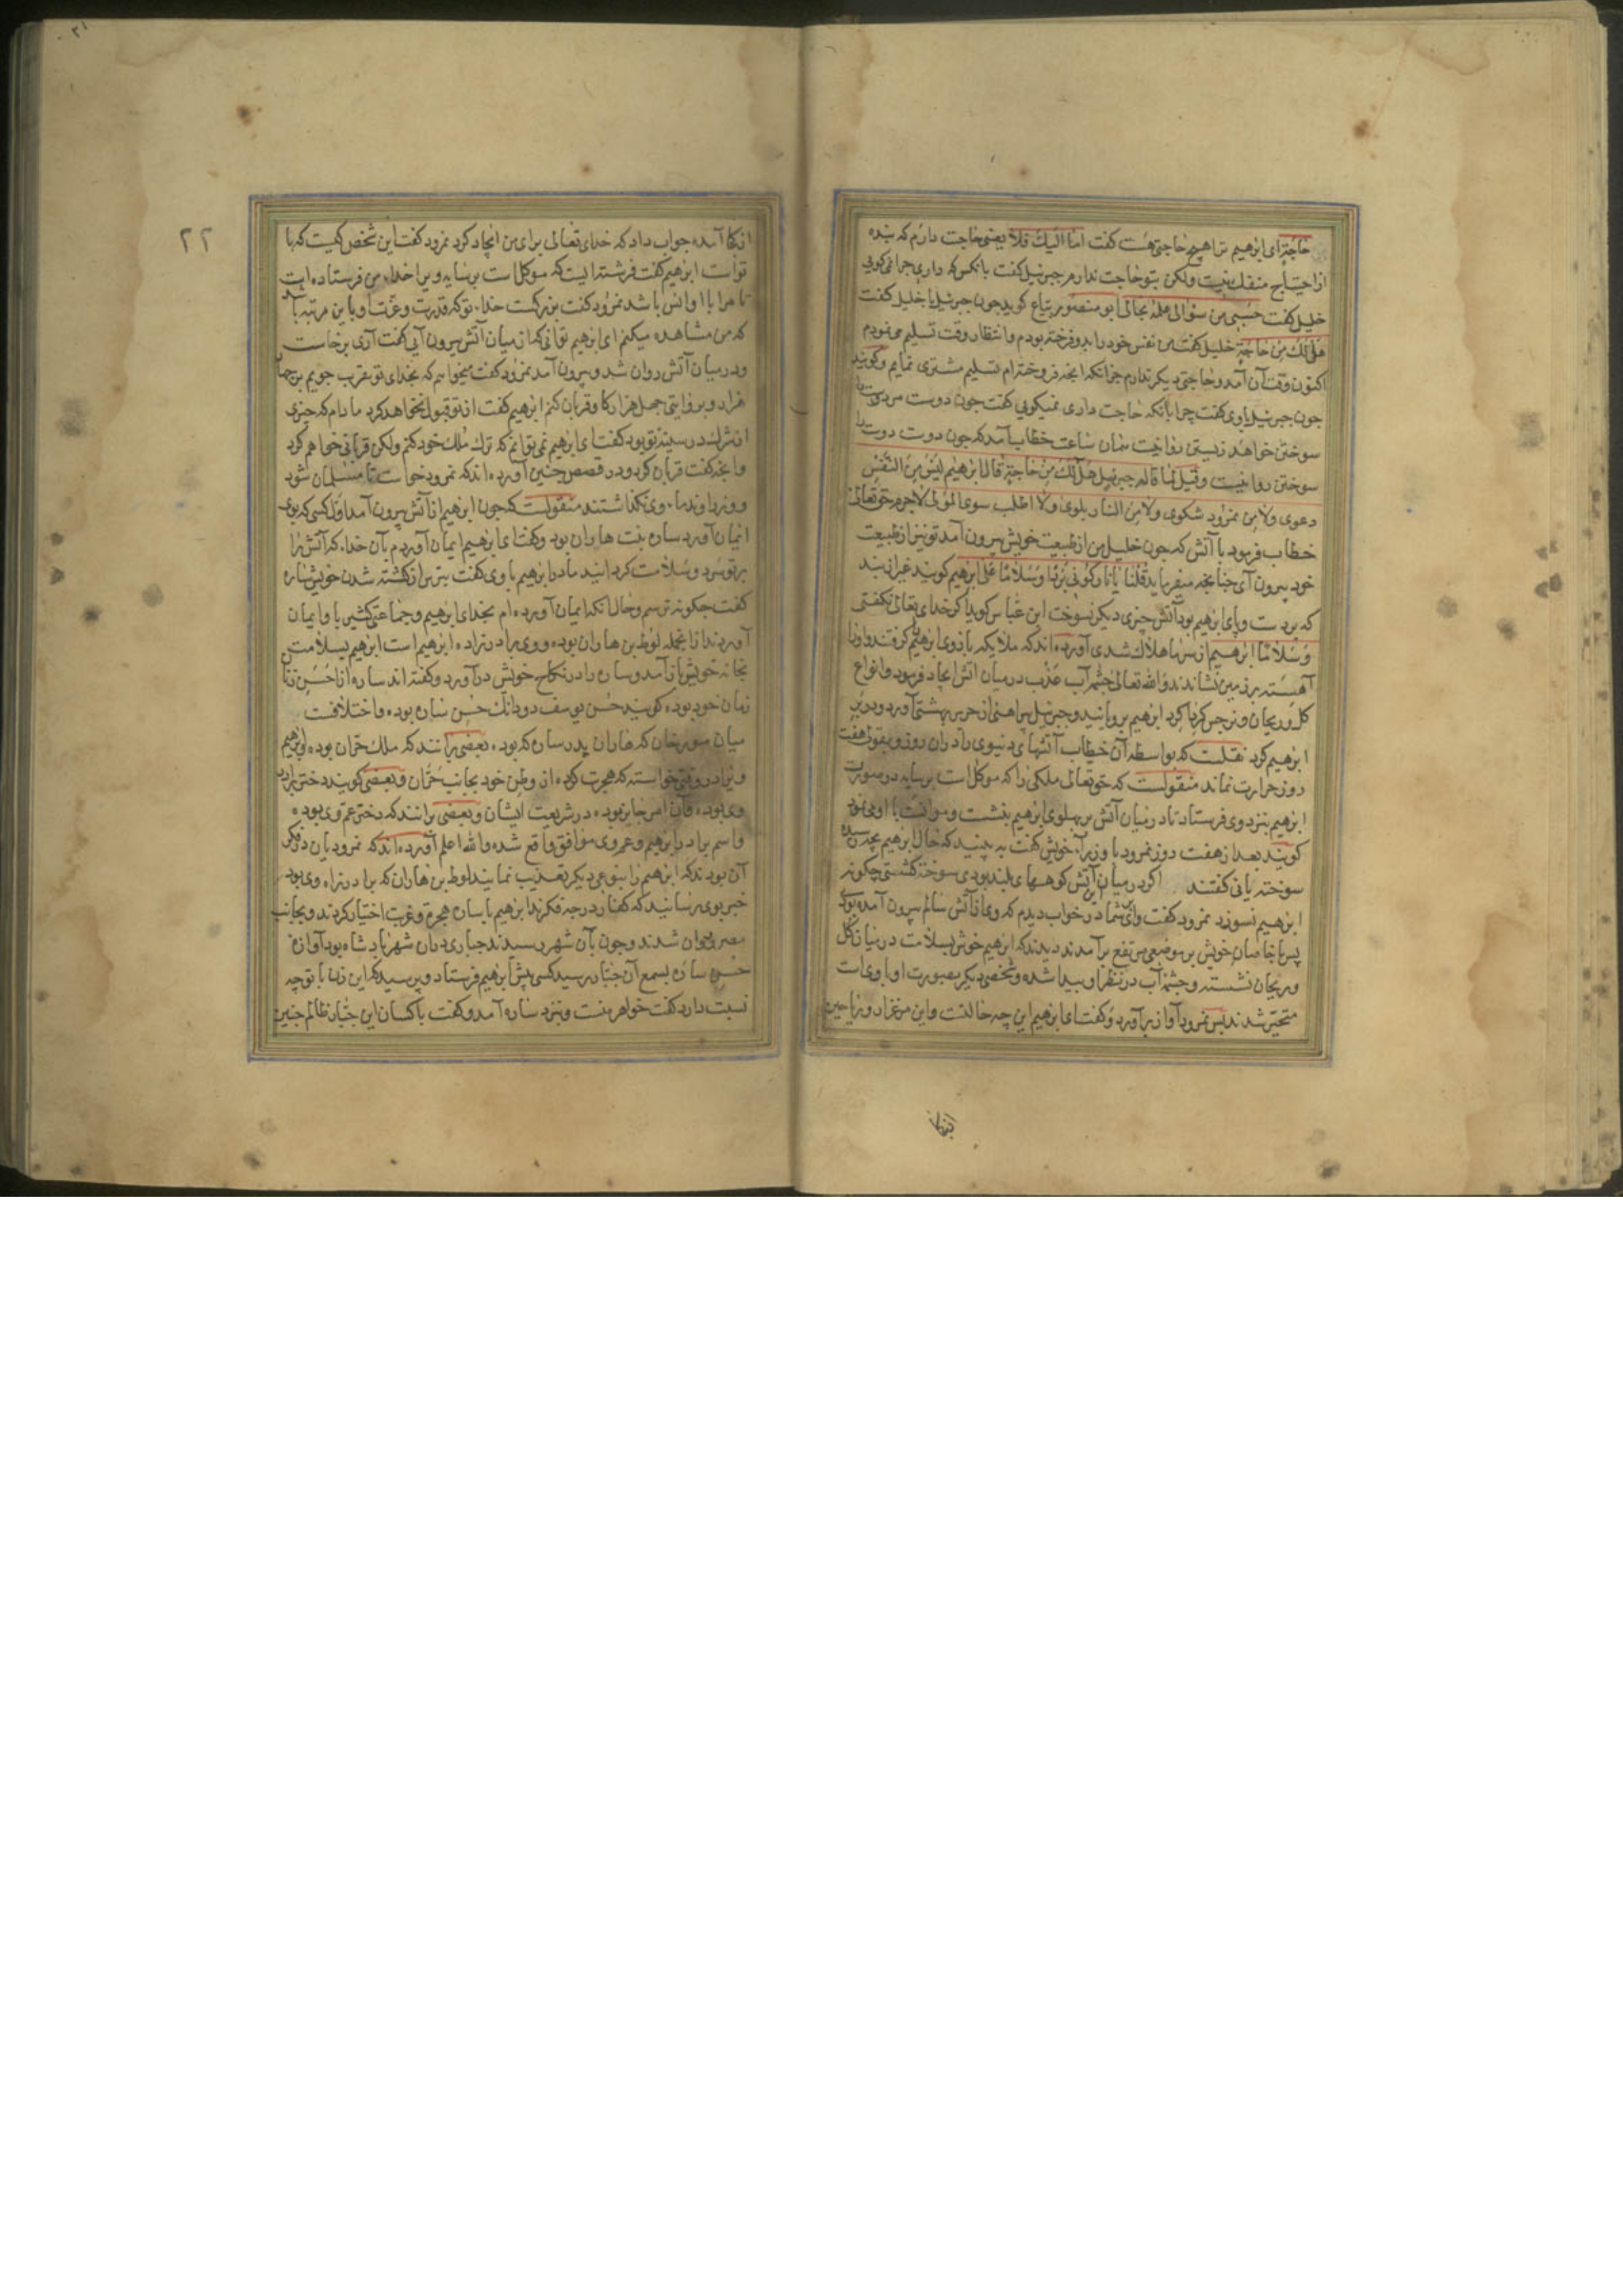 حاجة ای ابرهیم ترا هیچ حاجتی هست کفت اما الیك فلا یعنی حاجت دارم که بنده
از احتیاج منفك نیست ولکن بتو حاجت ندارم جبرئیل کفت بانکس که داری چرا نمی کویی
خلیل کفت حسبی من سؤالی علمه بحالی ابو منصور کوید چون جبرئیل با خلیل کفت
هل لك من حاجة خلیل کفت من نفس خود را بدو فرخته بودم و انتظار وقت تسلیم می نمودم
اکنون وقت آن آمد و حاجتی دیکر ندارم جز انکه انچه فروخته ام تسلیم مشتری نمایم و کویند
چون جبرئیل با وی کفت چرا بانکه حاجت داری نمیکویی کفت چون دوست مر دوست را
سوختن خواهد زیستن روا نیست همان ساعت خطاب آمد که چون دوست دوست را
سوختن روا نیست و قیل لما قال له جبرئیل هل لك من حاجة قال ابرهیم لیس من النفس
دعوی ولا من نمرود شکوی ولا من النار بلوی ولا اطلب سوی المولی لاجرم حق تعالی
خطاب فرمود با آتش که چون خلیل من از طبیعت خویش بیرون آمد تو نیز از طبیعت
خود بیرون آی چنانچه میفرماید قلنا یا نار کونی بردا وسلاما علی ابرهیم کویند غیر از بند
که بر دست و پای ابرهیم بود آتش چیزی دیکر نسوخت ابن عباس کوید اکر خدای تعالی نکفتی
وسلاما ابرهیم از سرما هلاك شدی آورده اند که ملایکه بازوی ابرهیم کرفتند و او را
آهسته بر زمین نشاندند و الله تعالی چشمه آب عذب در میان آتش ایجاد فرمود و انواع
کل و ریحان و نرجس کرد با کرد ابرهیم برویانید و جبرئیل پیراهنی از حریر بهشتی آورد و در بر
ابرهیم کرد نقلست که بواسطه آن خطاب آتشهای دنیوی را در ان روز و بقولی هفت
روز حرارت نماند منقولست که حق تعالی ملکی را که موکل است بر سایه در صورت
ابرهیم بنزد وی فرستاد تا در میان آتش بر پهلوی ابرهیم بنشست و موانست با او می نمود
کویند بعد از هفت روز نمرود با وزرآء خویش کفت به بینید که حال ابرهیم بچه رسیده
سوخته یا نی کفتند اکر در میان آن آتش کوههای بلند بودی سوخته کشتی چکونه
ابرهیم نسوزد نمرود کفت وای شما در خواب دیدم که وی از آتش سالم بیرون آمده بودی
پس با خاصان خویش بر موضعی مرتفع بر آمدند دیدند که ابرهیم خوش بسلامت در میان کل
و ریحان نشسته و چشمه آب در نظر او پیدا شده و شخصی دیکر بصورت او با وی است
متحیر شدند پس نمرود آواز بر آورد و کفت ای ابرهیم این چه حالتست و این مرغزار و ریاحین
ازکجا
۲۲
از کجا آمده جواب داد که خدای تعالی برای من ایجاد کرد نمرود کفت این شخص کیست که با
تو است ابرهیم کفت فرشته ایست که موکل است بر سایه ویرا خداء من فرستاده است
تا مرا با او انس باشد نمرود کفت بزرکست خداء تو که قدرت و عزت او باین مرتبه است
که من مشاهده میکنم ای ابرهیم توانی که از میان آتش بیرون آیی کفت آری برخاست
و در میان آتش روان شد و بیرون آمد نمرود کفت میخواهم که بخدای تو تقرب جویم پس چهار
هزار و بروایتی چهل هزار کاو قربان کنم ابرهیم کفت از تو قبول نخواهد کرد مادام که چیزی
از شرك در سینه تو بود کفت ای ابرهیم نمی توانم که ترك ملك خود کنم ولکن قربانی خواهم کرد
و انچه کفت قربان کرد و در قصص چنین آورده اند که نمرود خواست تا مسلمان شود
و وزرا و ندماء وی نکذاشتند منقولست که چون ابرهیم از آتش بیرون آمد اول کسی که بوی
ایمان آورد ساره بنت هاران بود و کفت ای ابرهیم ایمان آوردم بآن خداء که آتش را
بر تو سرد و سلامت کردانید مادر ابرهیم با وی کفت بترس از کشته شدن خویش ساره
کفت چکونه ترسم و حال انکه ایمان آورده ام بخدای ابرهیم و جماعتی کثیر با و ایمان
آوردند از انجمله لوط بن هاران بوده و وی برادر زاده ابرهیم است ابرهیم بسلامت
بخانه خویش باز آمد و ساره را در نکاح خویش در آورد و کفته اند ساره از احسن زنان
زمان خود بوده کویند حسن یوسف دو دانك حسن ساره بوده و اختلافست
میان مورخان که هاران پدر ساره که بوده بعضی بر آنند که ملك حران بوده و ابرهیم
ویرا در وقتی خواسته که هجرت کرده از وطن خود بجانب حران و بعضی کویند دختر برادر
وی بوده و آن امر جایز بوده در شریعت ایشان و بعضی بر انند که دختر عم وی بوده
و اسم برادر ابرهیم و عم وی موافق واقع شده والله اعلم آورده اند که نمرودیان در فکر
آن بودند که ابرهیم را بنوعی دیکر تعذیب نمایند لوط بن هاران که برادر زاده وی بود
خبر بوی رسانید که کفار در چه فکرند ابرهیم با ساره هجرت و غربت اختیار کردند و بجانب
مصر روان شدند و چون بآن شهر رسیدند جباری در ان شهر پادشاه بود آوازه
حسن ساره بسمع آن جبار رسید کسی پیش ابرهیم فرستاد و پرسید که این زن با تو چه
نسبت دارد کفت خواهر منست و بنزد ساره آمد و کفت با کسان این جبار ظالم چنین